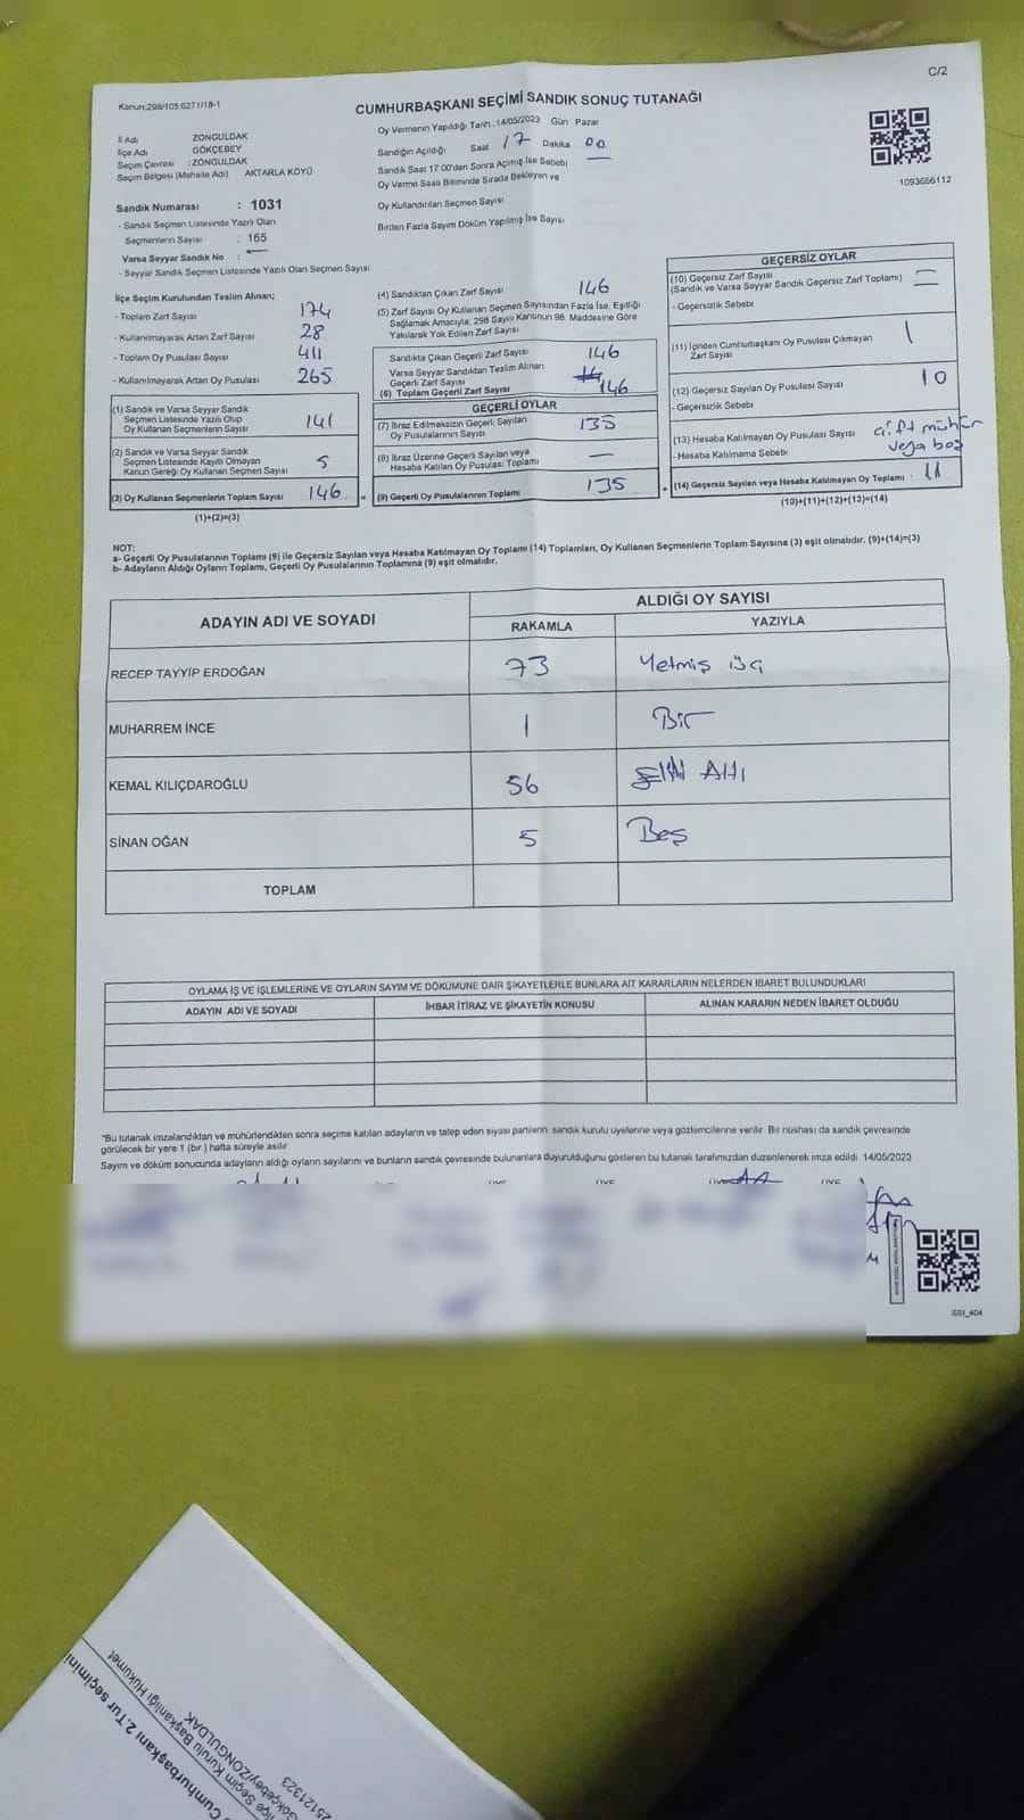 C/2
Kanun:298/105 6271/18-1
CUMHURBAŞKANI SEÇİMİ SANDIK SONUÇ TUTANAĞI
İl Adı ZONGULDAK
İlçe Adı GÖKÇEBEY
Seçim Çevresi : ZONGULDAK
Seçim Bölgesi (Mahalle Adı) AKTARLA KÖYÜ
Oy Vermenin Yapıldığı Tarih: 14/05/2023 Gün Pazar
Sandığın Açıldığı Saat 17 Dakika 00
Sandık Saat 17:00'den Sonra Açılmış İse Sebebi —
Oy Verme Saati Bitiminde Sırada Bekleyen ve
Oy Kullandırılan Seçmen Sayısı
Birden Fazla Sayım Döküm Yapılmış İse Sayısı
1093656112
Sandık Numarası : 1031
- Sandık Seçmen Listesinde Yazılı Olan
Seçmenlerin Sayısı : 165
Varsa Seyyar Sandık No : —
- Seyyar Sandık Seçmen Listesinde Yazılı Olan Seçmen Sayısı
İlçe Seçim Kurulundan Teslim Alınan;
- Toplam Zarf Sayısı 174
- Kullanılmayarak Artan Zarf Sayısı 28
- Toplam Oy Pusulası Sayısı 411
- Kullanılmayarak Artan Oy Pusulası 265
(1) Sandık ve Varsa Seyyar Sandık
Seçmen Listesinde Yazılı Olup
Oy Kullanan Seçmenlerin Sayısı 141
(2) Sandık ve Varsa Seyyar Sandık
Seçmen Listesinde Kayıtlı Olmayan
Kanun Gereği Oy Kullanan Seçmen Sayısı 5
(3) Oy Kullanan Seçmenlerin Toplam Sayısı 146 =
(1)+(2)=(3)
(4) Sandıktan Çıkan Zarf Sayısı 146
(5) Zarf Sayısı Oy Kullanan Seçmen Sayısından Fazla İse, Eşitliği
Sağlamak Amacıyla, 298 Sayılı Kanunun 98. Maddesine Göre
Yakılarak Yok Edilen Zarf Sayısı
Sandıkta Çıkan Geçerli Zarf Sayısı 146
Varsa Seyyar Sandıktan Teslim Alınan
Geçerli Zarf Sayısı
(6) Toplam Geçerli Zarf Sayısı 146
GEÇERLİ OYLAR
(7) İtiraz Edilmeksizin Geçerli Sayılan
Oy Pusulalarının Sayısı 135
(8) İtiraz Üzerine Geçerli Sayılan veya
Hesaba Katılan Oy Pusulası Toplamı —
(9) Geçerli Oy Pusulalarının Toplamı 135 +
GEÇERSİZ OYLAR
(10) Geçersiz Zarf Sayısı
(Sandık ve Varsa Seyyar Sandık Geçersiz Zarf Toplamı) —
- Geçersizlik Sebebi —
(11) İçinden Cumhurbaşkanı Oy Pusulası Çıkmayan
Zarf Sayısı 1
(12) Geçersiz Sayılan Oy Pusulası Sayısı 10
- Geçersizlik Sebebi
(13) Hesaba Katılmayan Oy Pusulası Sayısı çift mühür
- Hesaba Katılmama Sebebi veya boş
(14) Geçersiz Sayılan veya Hesaba Katılmayan Oy Toplamı : 11
(10)+(11)+(12)+(13)=(14)
NOT:
a- Geçerli Oy Pusulalarının Toplamı (9) ile Geçersiz Sayılan veya Hesaba Katılmayan Oy Toplamı (14) Toplamları, Oy Kullanan Seçmenlerin Toplam Sayısına (3) eşit olmalıdır. (9)+(14)=(3)
b- Adayların Aldığı Oyların Toplamı, Geçerli Oy Pusulalarının Toplamına (9) eşit olmalıdır.
ADAYIN ADI VE SOYADI
ALDIĞI OY SAYISI
RAKAMLA YAZIYLA
RECEP TAYYİP ERDOĞAN 73 Yetmiş üç
MUHARREM İNCE 1 Bir
KEMAL KILIÇDAROĞLU 56 Elli Altı
SİNAN OĞAN 5 Beş
TOPLAM
OYLAMA İŞ VE İŞLEMLERİNE VE OYLARIN SAYIM VE DÖKÜMÜNE DAİR ŞİKAYETLERLE BUNLARA AİT KARARLARIN NELERDEN İBARET BULUNDUKLARI
ADAYIN ADI VE SOYADI İHBAR İTİRAZ VE ŞİKAYETİN KONUSU ALINAN KARARIN NEDEN İBARET OLDUĞU
"Bu tutanak imzalandıktan ve mühürlendikten sonra seçime katılan adayların ve talep eden siyasi partilerin sandık kurulu üyelerine veya gözlemcilerine verilir. Bir nüshası da sandık çevresinde
görülecek bir yere 1 (bir) hafta süreyle asılır.
Sayım ve döküm sonucunda adayların aldığı oyların sayılarını ve bunların sandık çevresinde bulunanlara duyurulduğunu gösteren bu tutanak tarafımızdan düzenlenerek imza edildi. 14/05/2023
Cumhurbaşkanı 2.Tur seçimini
İlçe Seçim Kurulu Başkanlığı Hükümet
Gökçebey/ZONGULDAK
25121323